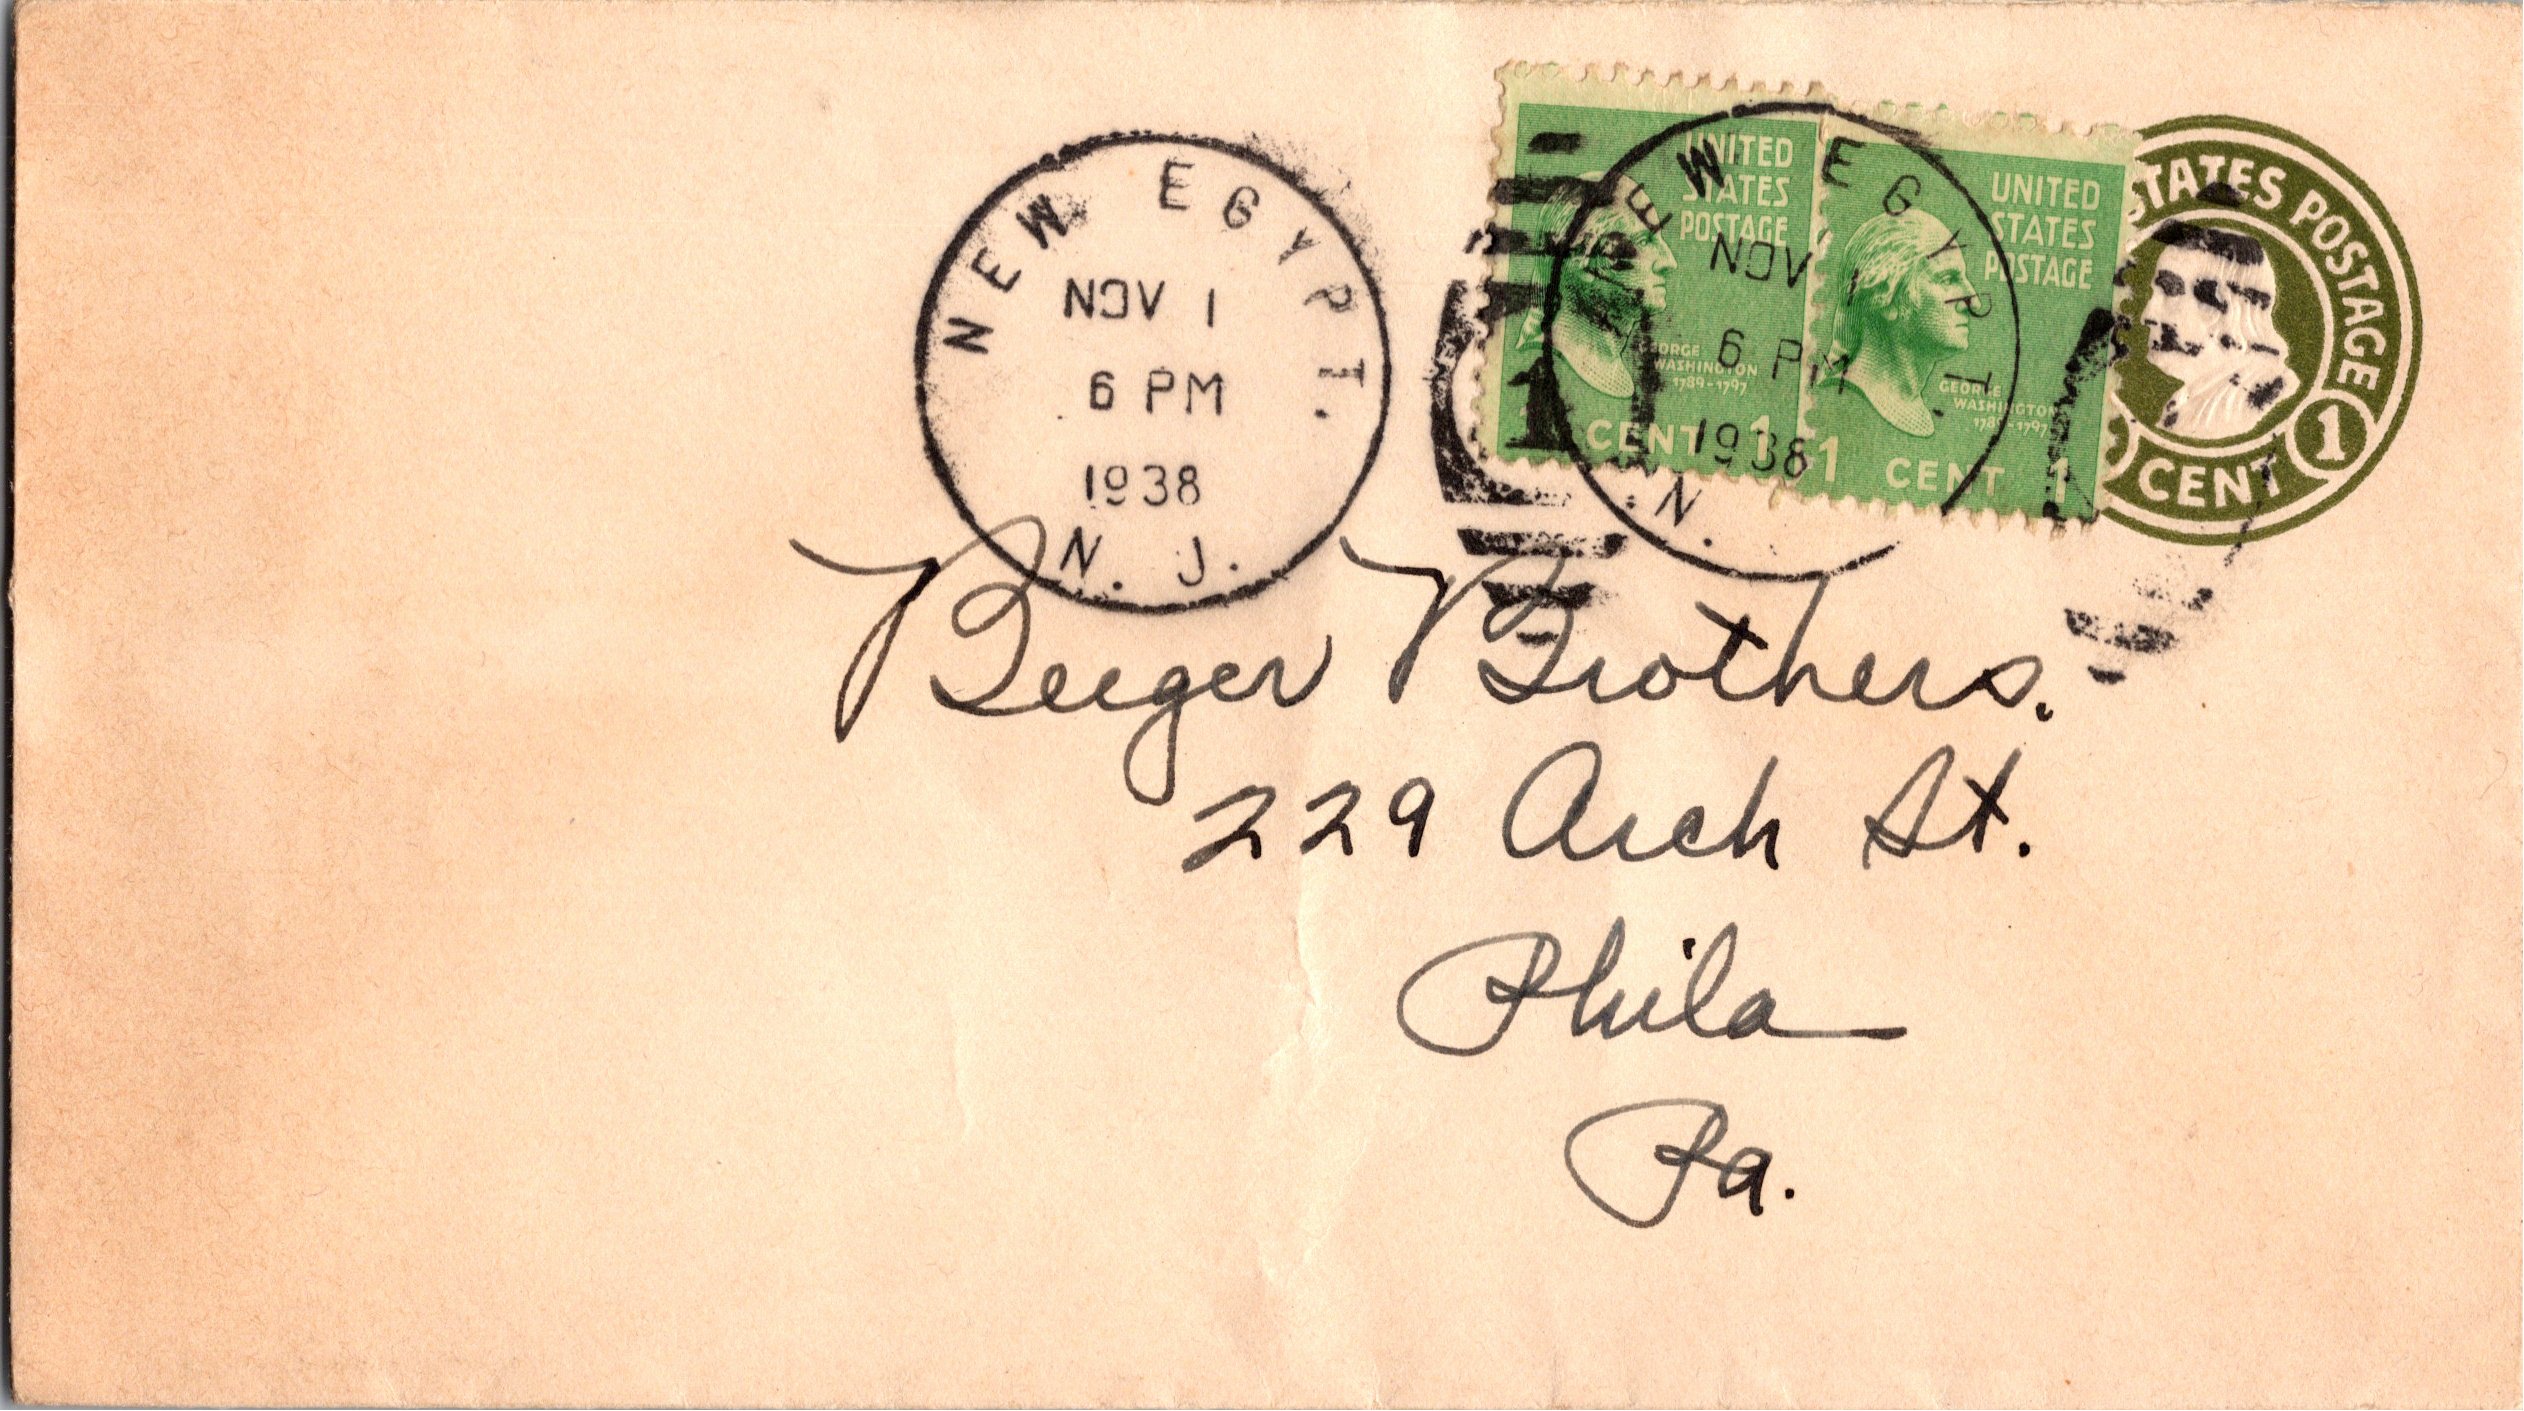 NEW EGYPT.
NOV 1
6 PM
1938
N. J.
NEW EGYPT.
NOV 1
6 PM
1938
N.
1
UNITED
STATES
POSTAGE
GEORGE
WASHINGTON
1789-1797
CENT 1
UNITED
STATES
POSTAGE
GEORGE
WASHINGTON
1789-1797
1 CENT 1
STATES POSTAGE
CENT 1
Brothers.
229 Arch St.
Phila
Pa.